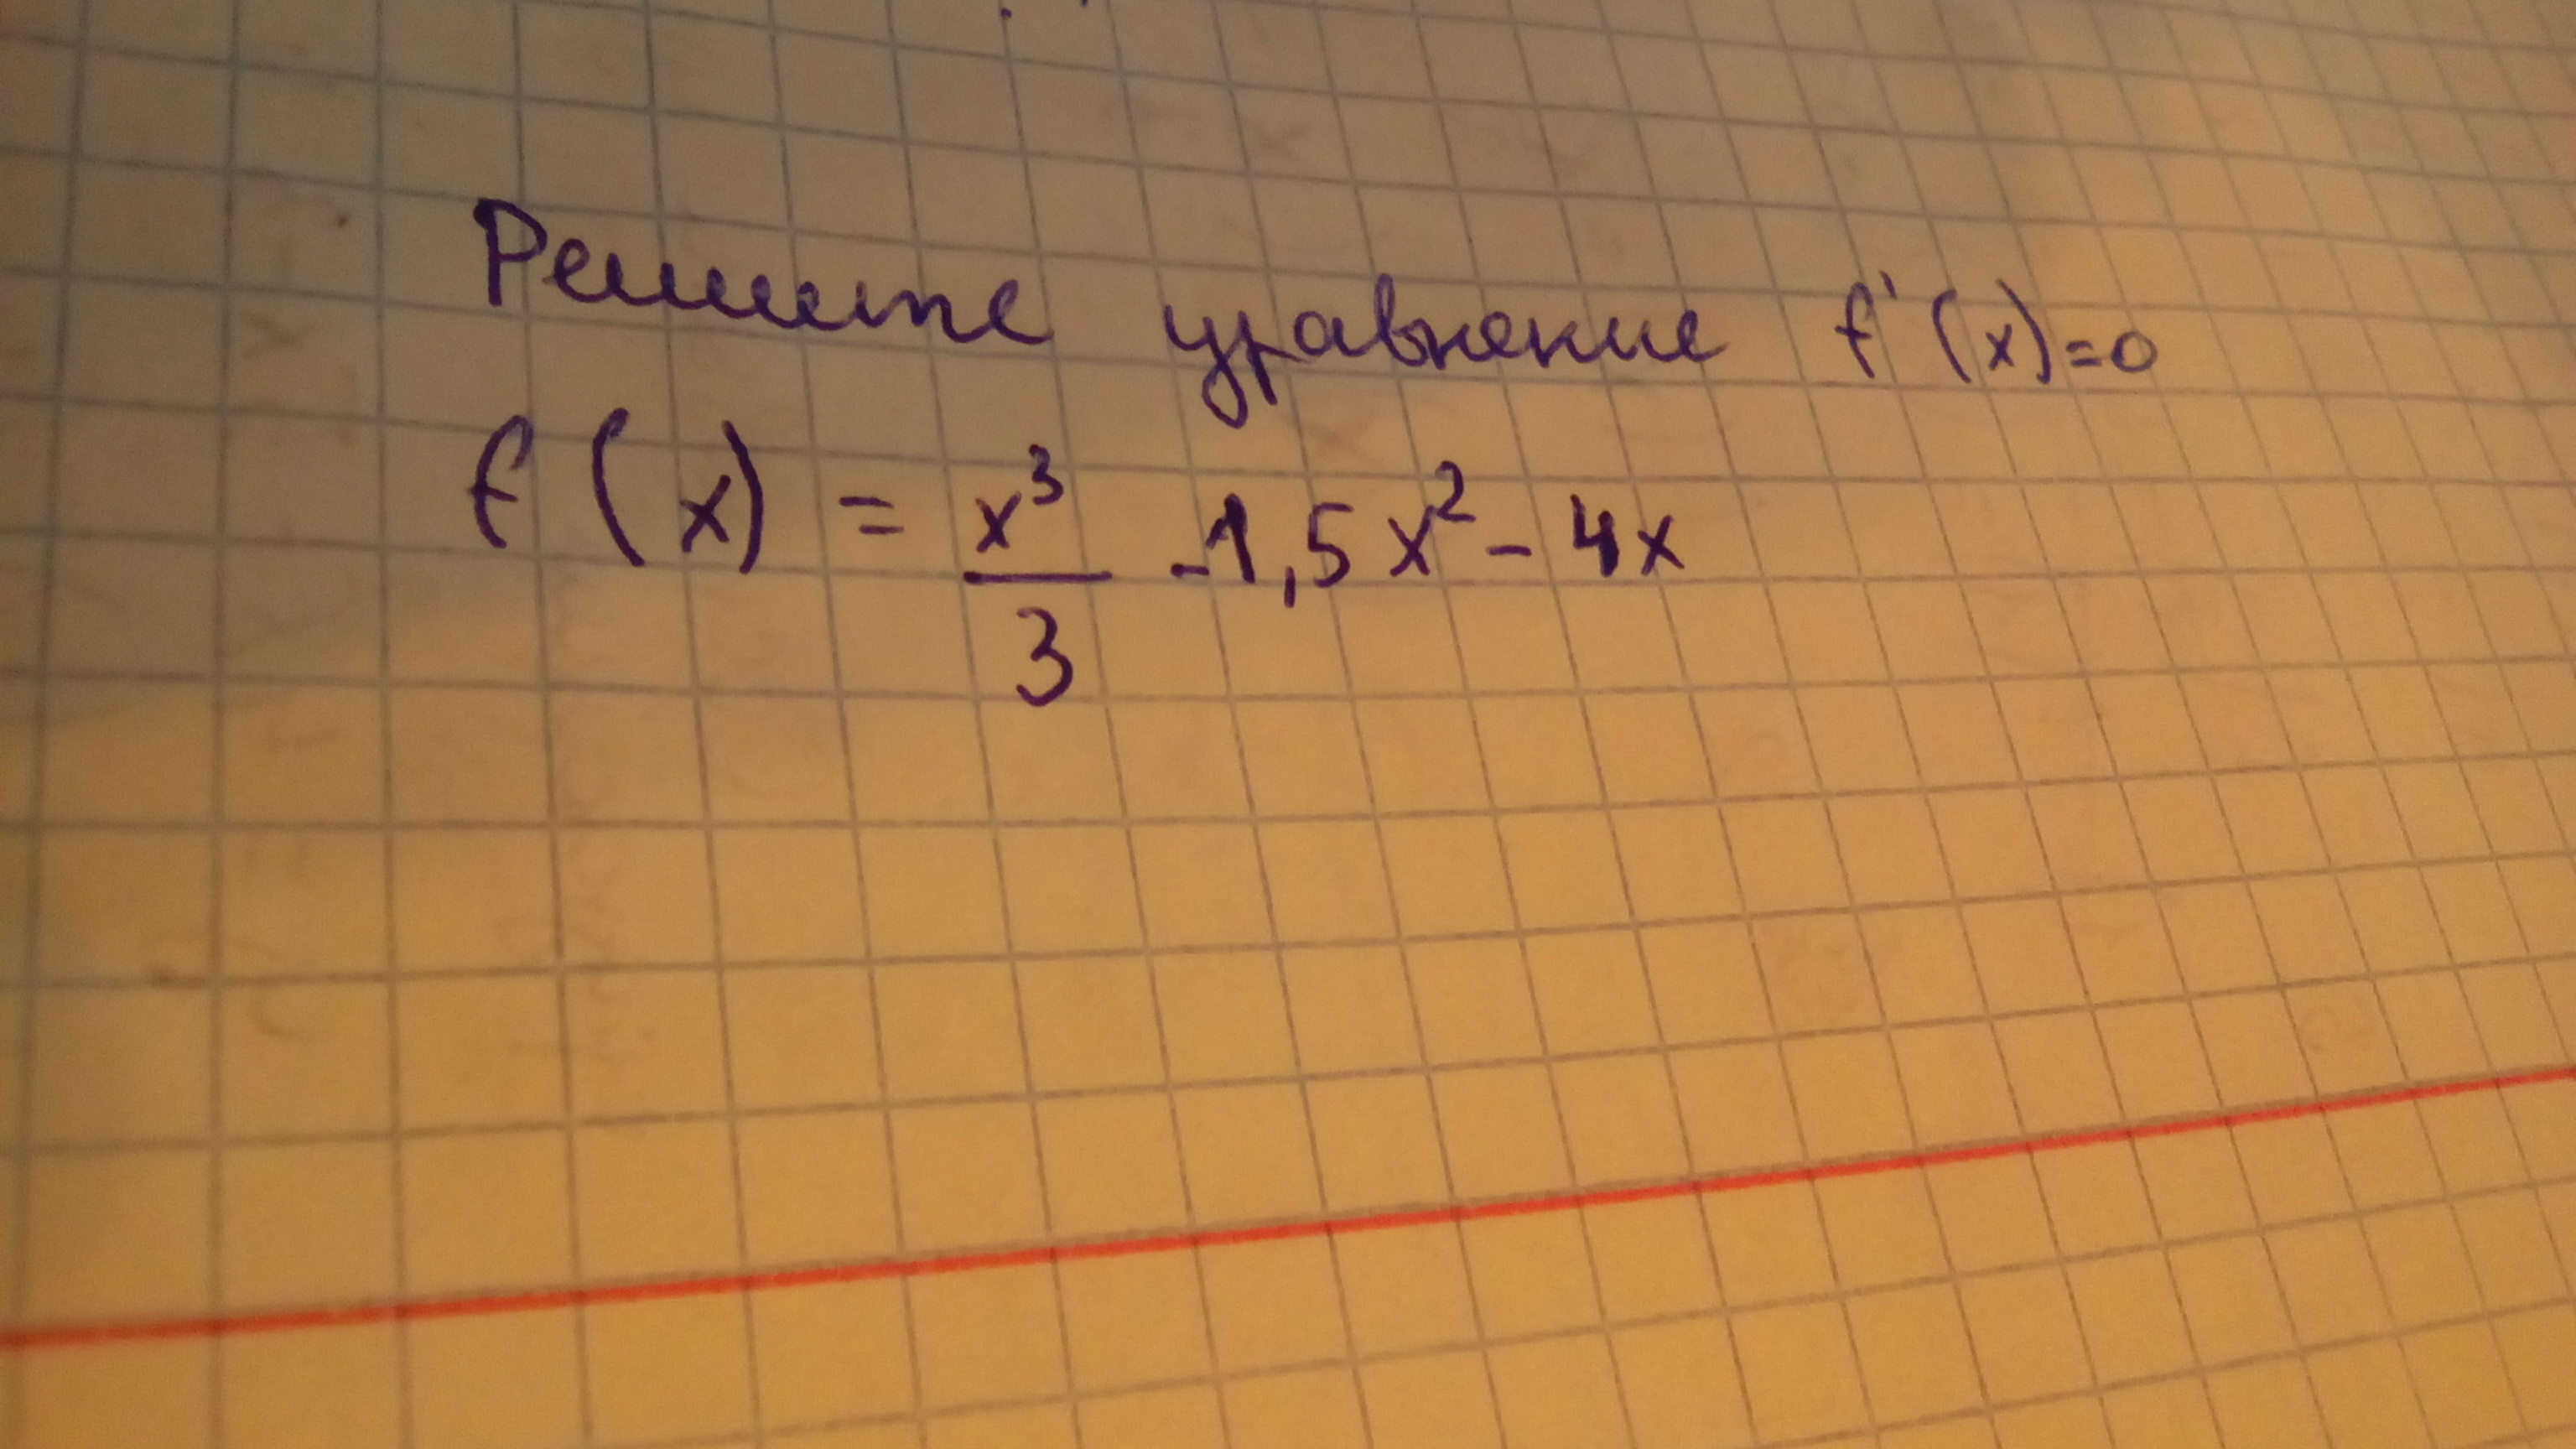 Решите уравнение f'(x)=0
f(x) = x³/3 -1,5x² - 4x